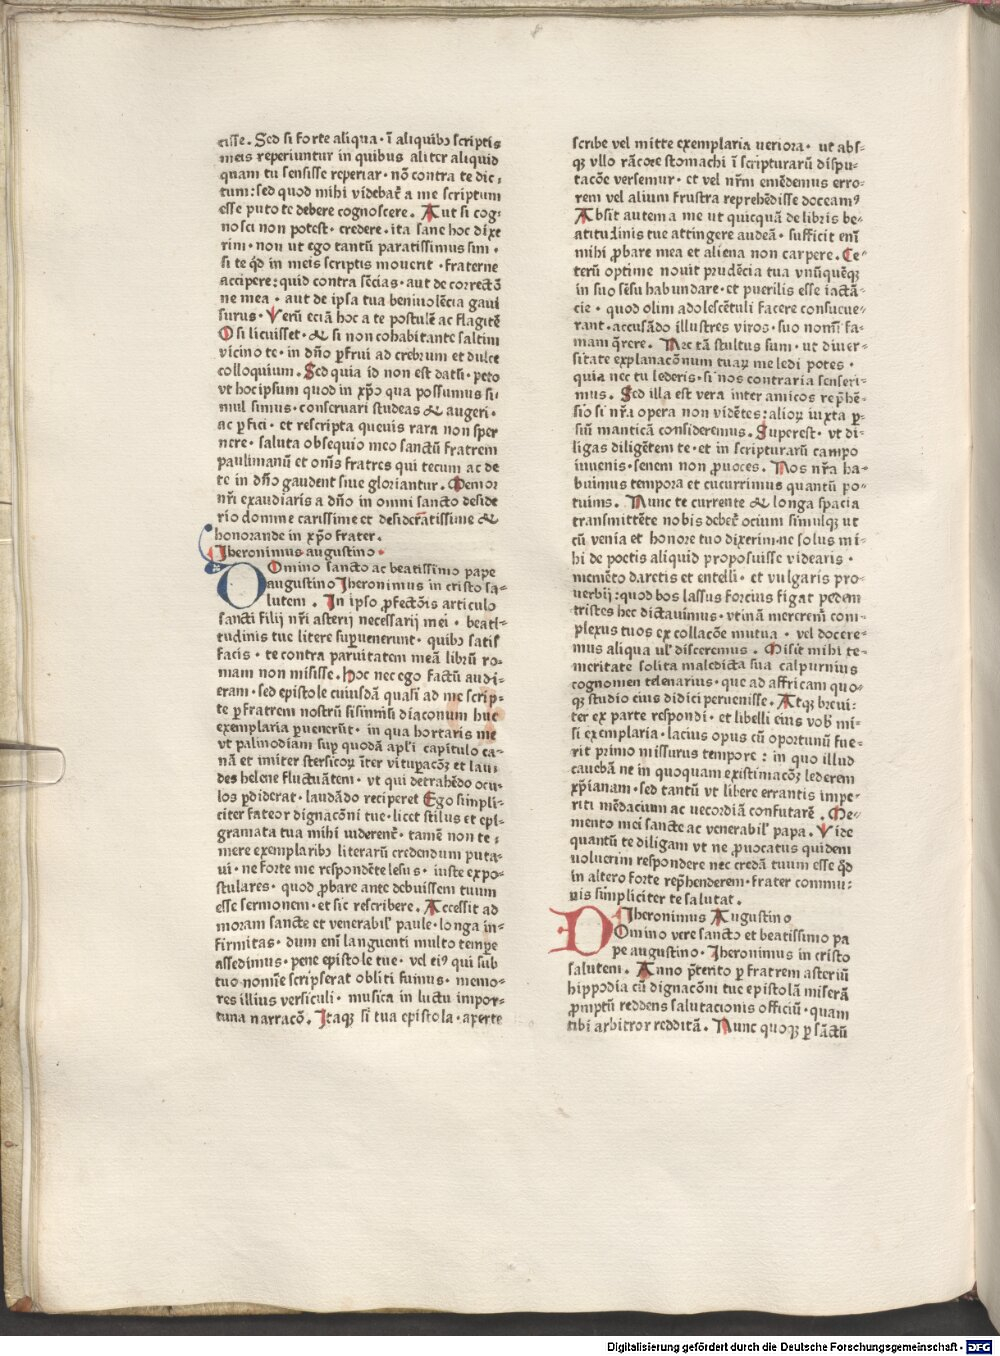 cisse. Sed si forte aliqua · ī aliquibꝫ scriptis
meis reperiuntur in quibus aliter aliquid
quam tu sensisse reperiar · nō contra te dic⸗
tum: sed quod mihi videbat̄ a me scriptum
esse puto te debere cognoscere. Aut si cog⸗
nosci non potest · credere · ita sane hoc dixe
rim · non ut ego tantū paratissimus sim ·
si te qd̄ in meis scriptis mouerit · fraterne
accipere: quid contra sēcias · aut de correctō
ne mea · aut de ipsa tua beniuolēcia gaui
surus · Verū eciā hoc a te postulē ac flagitē
O si licuisset · & si non cohabitante saltim
vicino te · in dn̄o ꝑfrui ad crebrum et dulce
colloquium. Sed quia id non est datū · peto
vt hoc ipsum quod in xp̄o qua possumus si⸗
mul simus · conseruari studeas & augeri ·
ac ꝑfici · et rescripta queuis rara non sper
nere · saluta obsequio meo sanctū fratrem
paulimanū et om̄s fratres qui tecum ac de
te in dn̄o gaudent siue gloriantur. Memor
nr̄i exaudiaris a dn̄o in omni sancto deside
rio domine carissime et desideratissime &
honorande in xp̄o frater.
Jheronimus augustino ·
Omino sancto ac beatissimo pape
augustino Jheronimus in cristo sa⸗
lutem. In ipso ꝓfectōis articulo
sancti filij nr̄i asterij necessarij mei · beati⸗
tudinis tue litere suꝑuenerunt · quibꝫ satis
facis · te contra paruitatem meā librū ro⸗
mam non misisse. Hoc nec ego factū audi⸗
eram · sed epistole cuiusdā quasi ad me scrip⸗
te ꝑ fratrem nostrū sisinniū diaconum huc
exemplaria ꝑuenerūt · in qua hortaris me
vt palinodiam suꝑ quodā apl̄i capitulo ca⸗
nā et imiter stersicoꝝ īter vituꝑacōꝫ et lau⸗
des helene fluctuātem · vt qui detrahēdo ocu⸗
los ꝑdiderat · laudādo reciperet Ego simpli⸗
citer fateor dignacōni tue · licet stilus et epi⸗
gramata tua mihi viderent̄ · tamē non te⸗
mere exemplaribꝫ literarū credendum puta⸗
ui · ne forte me respondēte lesus · iuste expo⸗
stulares · quod ꝓbare ante debuissem tuum
esse sermonem · et sic rescribere. Accessit ad
moram sancte et venerabil' paule · longa in⸗
firmitas · dum enī languenti multo tempe
assedimus · pene epistole tue · vel eiꝰ qui sub
tuo nomīe scripserat obliti fuimus · memo⸗
res illius versiculi · musica in luctu impor⸗
tuna narracō. Itaqꝫ si tua epistola · aperte
scribe vel mitte exemplaria ueriora · ut abs⸗
qꝫ vllo rācore stomachi ī scripturarū dispu⸗
tacōe versemur · et vel nr̄m emēdemus erro⸗
rem vel alium frustra reprehēdisse doceamꝰ
Absit autem a me ut quicquā de libris be⸗
atitudinis tue attingere audeā · sufficit enī
mihi ꝓbare mea et aliena non carpere. Ce⸗
terū optime nouit prudēcia tua vnūquēqꝫ
in suo sēsu habundare · et puerilis esse iactā⸗
cie · quod olim adolescētuli facere consueue⸗
rant · accusādo illustres viros · suo nomī fa⸗
mam q̄rere. Nec tā stultus sum · ut diuer⸗
sitate explanacōnum tuaꝝ me ledi potes ·
quia nec tu lederis · si nos contraria senseri⸗
mus. Sed illa est vera inter amicos rep̄hē⸗
sio si nr̄a opera non vidētes: alioꝝ iuxta ꝑ⸗
siū manticā consideremus. Superest · vt di⸗
ligas diligētem te · et in scripturarū campo
iuuenis · senem non ꝓuoces. Nos nr̄a ha⸗
buimus tempora et cucurrimus quantū po⸗
tuims. Nunc te currente & longa spacia
transmittēte nobis debet̄ ocium simulqꝫ ut
cū venia et honore tuo dixerim · ne solus mi⸗
hi de poetis aliquid proposuisse videaris ·
memēto daretis et entelli · et vulgaris pro⸗
uerbij: quod bos lassus forcius figat pedem
tristes hec dictauimus · vtinā mererem̄ com⸗
plexus tuos ex collacōe mutua · vel docere⸗
mus aliqua ul' disceremus. Misit mihi te⸗
meritate solita maledicta sua calpurnius
cognomen telenarius · que ad affricam quo⸗
qꝫ studio eius didici peruenisse. Atqꝫ breui⸗
ter ex parte respondi · et libelli eius vob' mi⸗
si exemplaria · lacius opus cū oportunū fue⸗
rit primo missurus tempore: in quo illud
cauebā ne in quoquam existimacōꝫ lederem
xp̄ianam · sed tantū vt libere errantis impe⸗
riti mēdacium ac uecordiā confutarē. Me⸗
mento mei sancte ac venerabil' papa. Vide
quantū te diligam vt ne ꝓuocatus quidem
voluerim respondere nec credā tuum esse qd̄
in altero forte rep̄henderem · frater commu⸗
nis simpliciter te salutat.
Jheronimus Augustino
DOmino vere sancto et beatissimo pa
pe augustino · Jheronimus in cristo
salutem. Anno p̄terito ꝑ fratrem asteriū
hippodiā cū dignacōni tue epistolā miserā
ꝓmptū reddens salutacionis officiū · quam
tibi arbitror redditā. Nunc quoqꝫ ꝑ sāctū
Digitalisierung gefördert durch die Deutsche Forschungsgemeinschaft - DFG